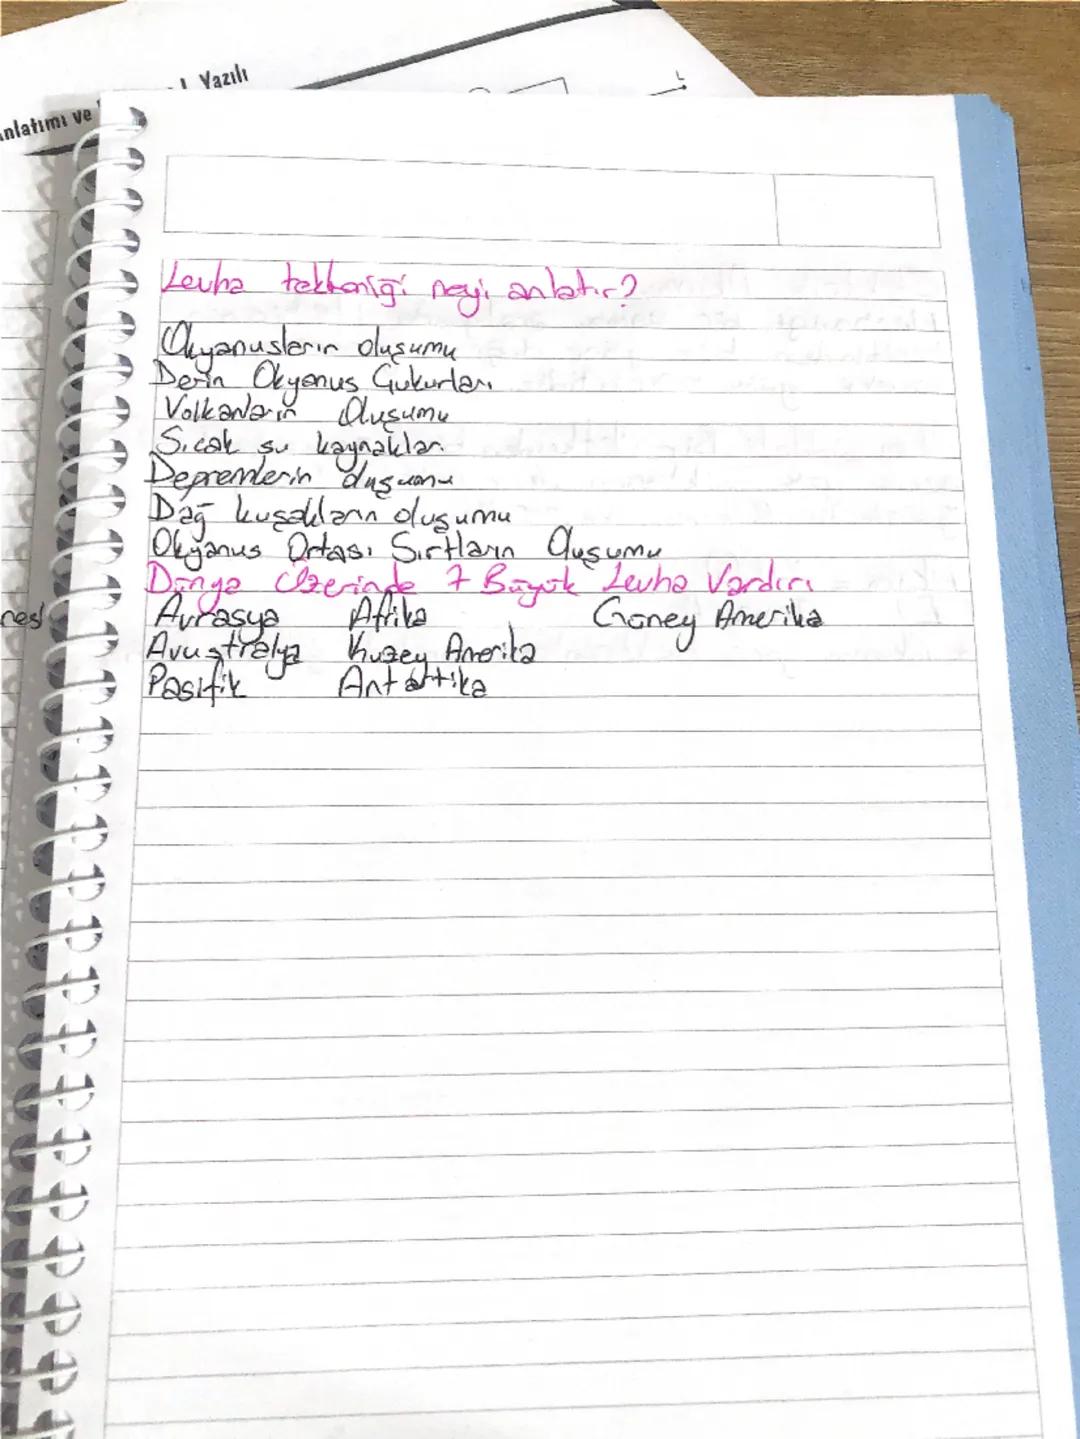 1. Yazılı
anlatımı ve
Levha tektoniği neyi anlatır?
Okyanusların oluşumu
Derin Okyanus Çukurları
Volkanların Oluşumu
Sıcak su kaynakları
Depremlerin oluşumu
Dağ kuşakların oluşumu
Okyanus Ortası Sırtların Oluşumu
Dünya Üzerinde 7 Büyük Levha Vardır:
Avrasya Afrika Güney Amerika
Avustralya Kuzey Amerika
Pasifik Antartika